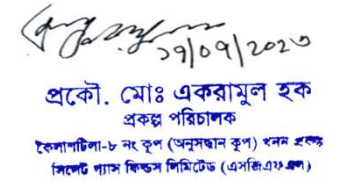 ১৭/০৭/২০২৩
প্রকৌ. মোঃ একরামুল হক
প্রকল্প পরিচালক
কৈলাশটিলা-৮ নং কূপ (অনুসন্ধান কূপ) খনন প্রকল্প
সিলেট গ্যাস ফিল্ডস লিমিটেড (এসজিএফএল)